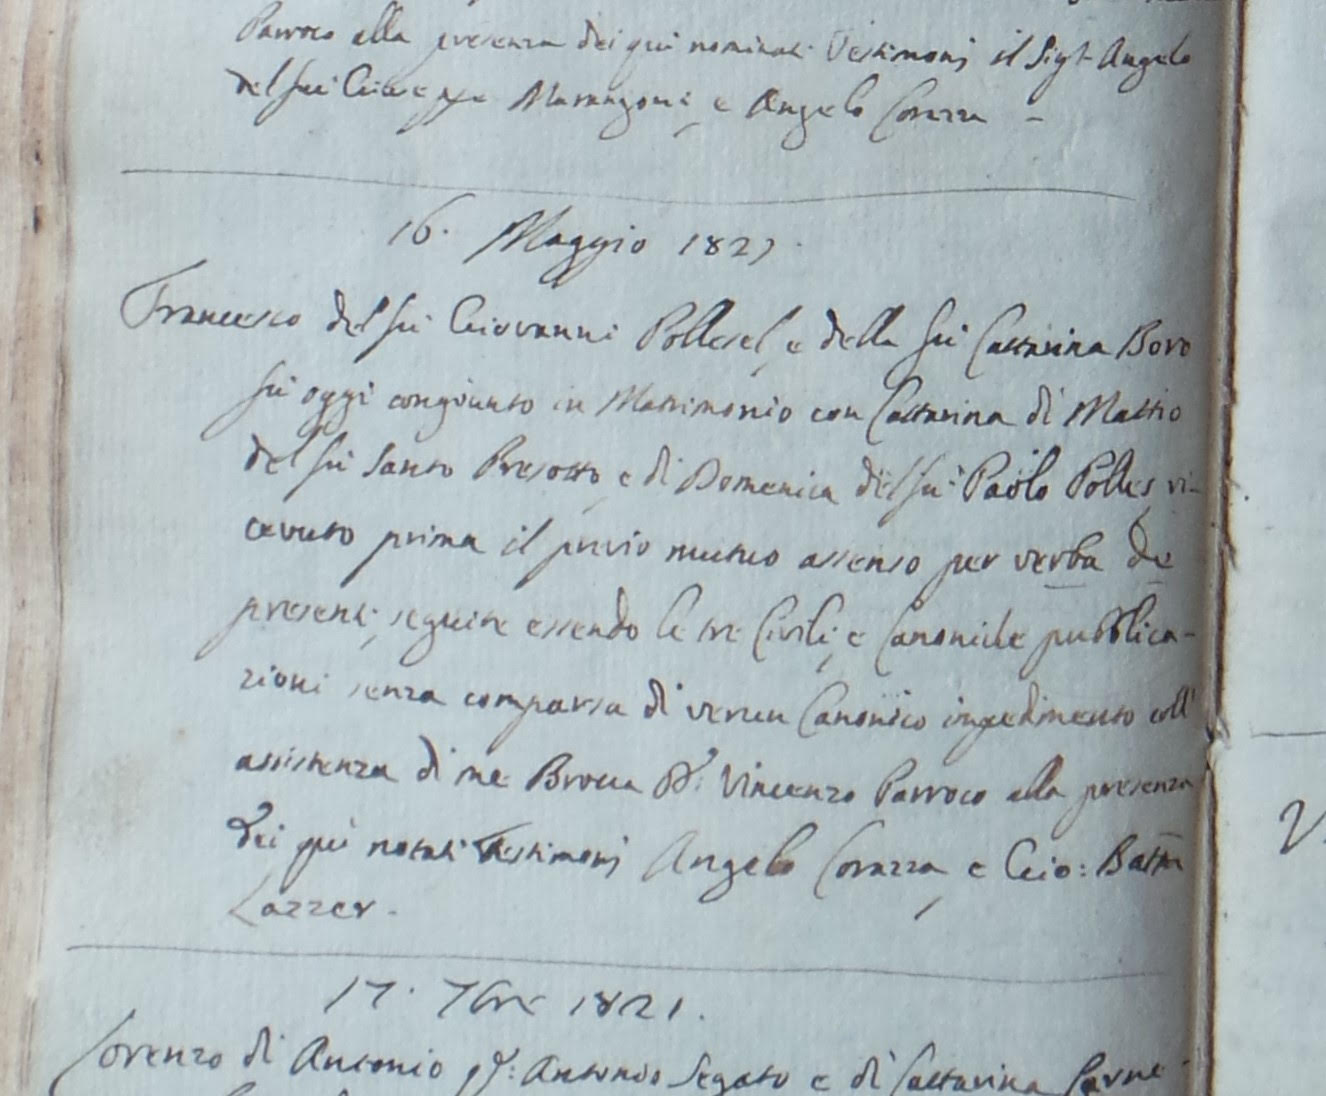 Parroco alla presenza dei qui nominati Testimonj il Sigr Angelo
del fu Giuseppe Marangoni, e Angelo Corazza –
16. Maggio 1821.
Francesco del fu Giovanni Pollesel, e della fu Cattarina Boro
fu oggi congiunto in Matrimonio con Cattarina di Mattio
del fu Santo Presotto, e di Domenica del fu Paolo Polles, ri-
cevuto prima il previo mutuo assenso per verba de
presenti, seguite essendo le tre Civili, e Canoniche pubblica-
zioni senza comparsa di verun Canonico impedimento coll'
assistenza di me Brocca Dn. Vincenzo Parroco alla presenza
dei qui notati Testimonj Angelo Corazza, e Gio: Battа
Lazzer.
17. 7bre 1821.
Lorenzo di Antonio qm: Antonio Segato e di Cattarina